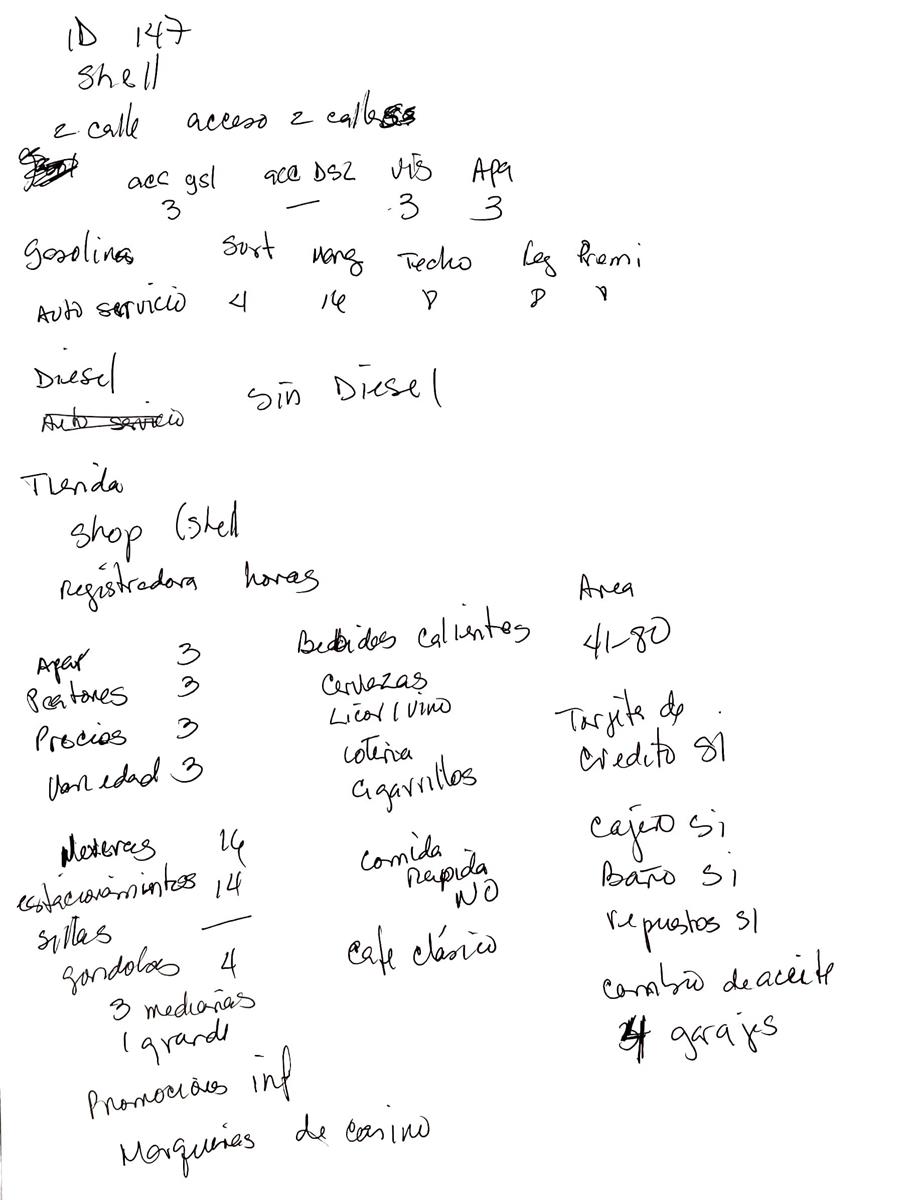 ID 147
Shell
2 calle acceso 2 calles
acc gsl acc DSL vis Apa
3 — 3 3
Gasolina Surt mang Techo Leg Premi
Auto servicio 4 16
Diesel
Auto servicio Sin Diesel
Tienda
Shop (Shell
Registradora horas Area
Bebidas calientes 41-80
Apar 3
Peatones 3 Cervezas
Licor / vino
Precios 3 Tarjeta de
Variedad 3 loteria Credito SI
Cigarrillos
Neveras 16 Comida Cajero Si
Rapida
estacionamientos 14 NO Baño Si
Sillas — repuestos SI
gondolas 4 Cafe clásico
3 medianas Cambio de aceite
1 grande 4 garajes
Promociones inf
Maquinas de casino